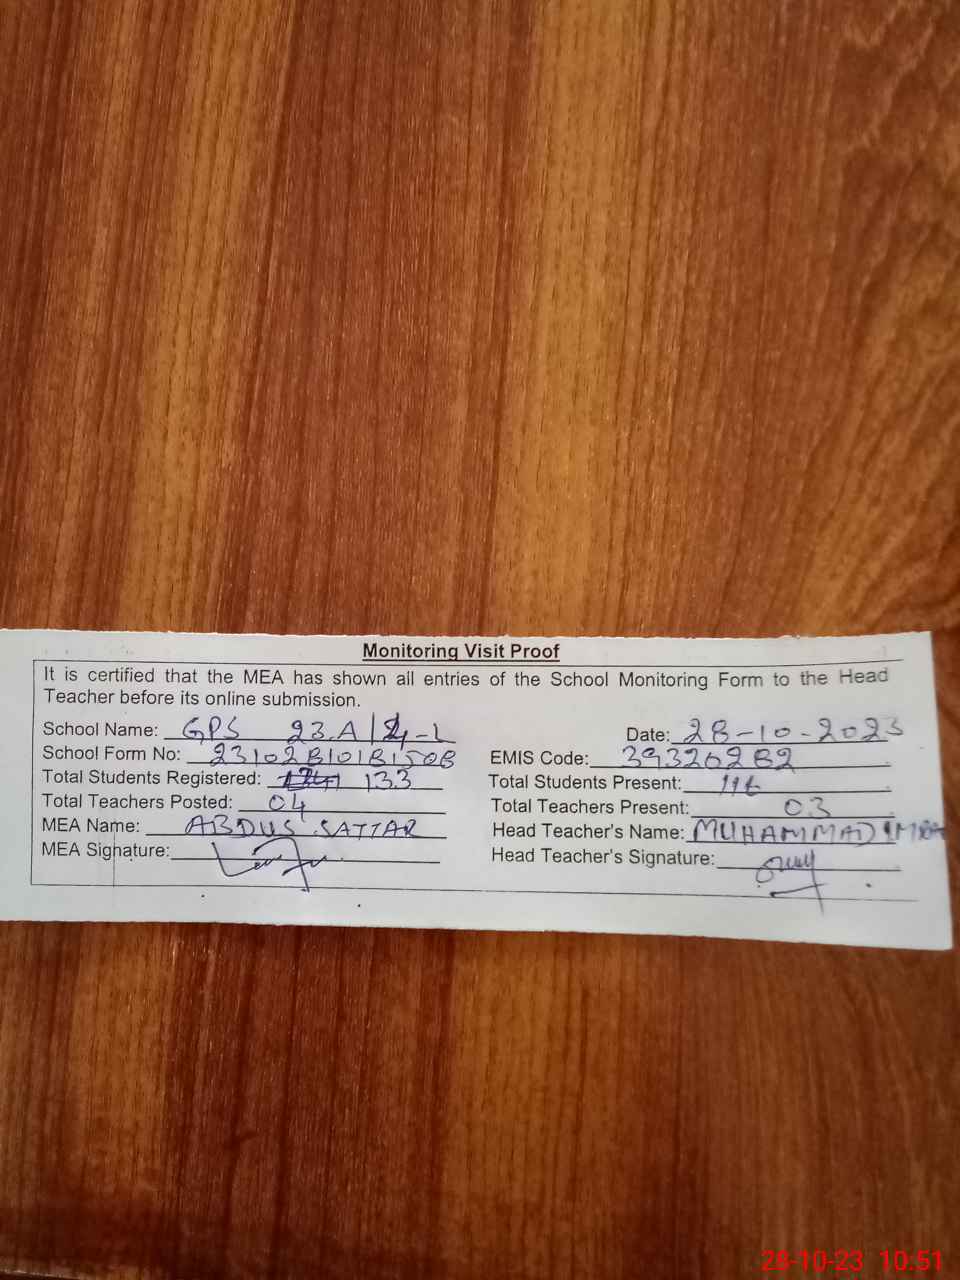 Monitoring Visit Proof
It is certified that the MEA has shown all entries of the School Monitoring Form to the Head
Teacher before its online submission.
School Name: GPS 23.A/4-L Date: 28-10-2023
School Form No: EMIS Code: 39326282
Total Students Registered: 133 Total Students Present: 116
Total Teachers Posted: 04 Total Teachers Present: 03
MEA Name: ABDUS SATTAR Head Teacher's Name: MUHAMMAD
MEA Signature: Head Teacher's Signature:
28-10-23 10:51